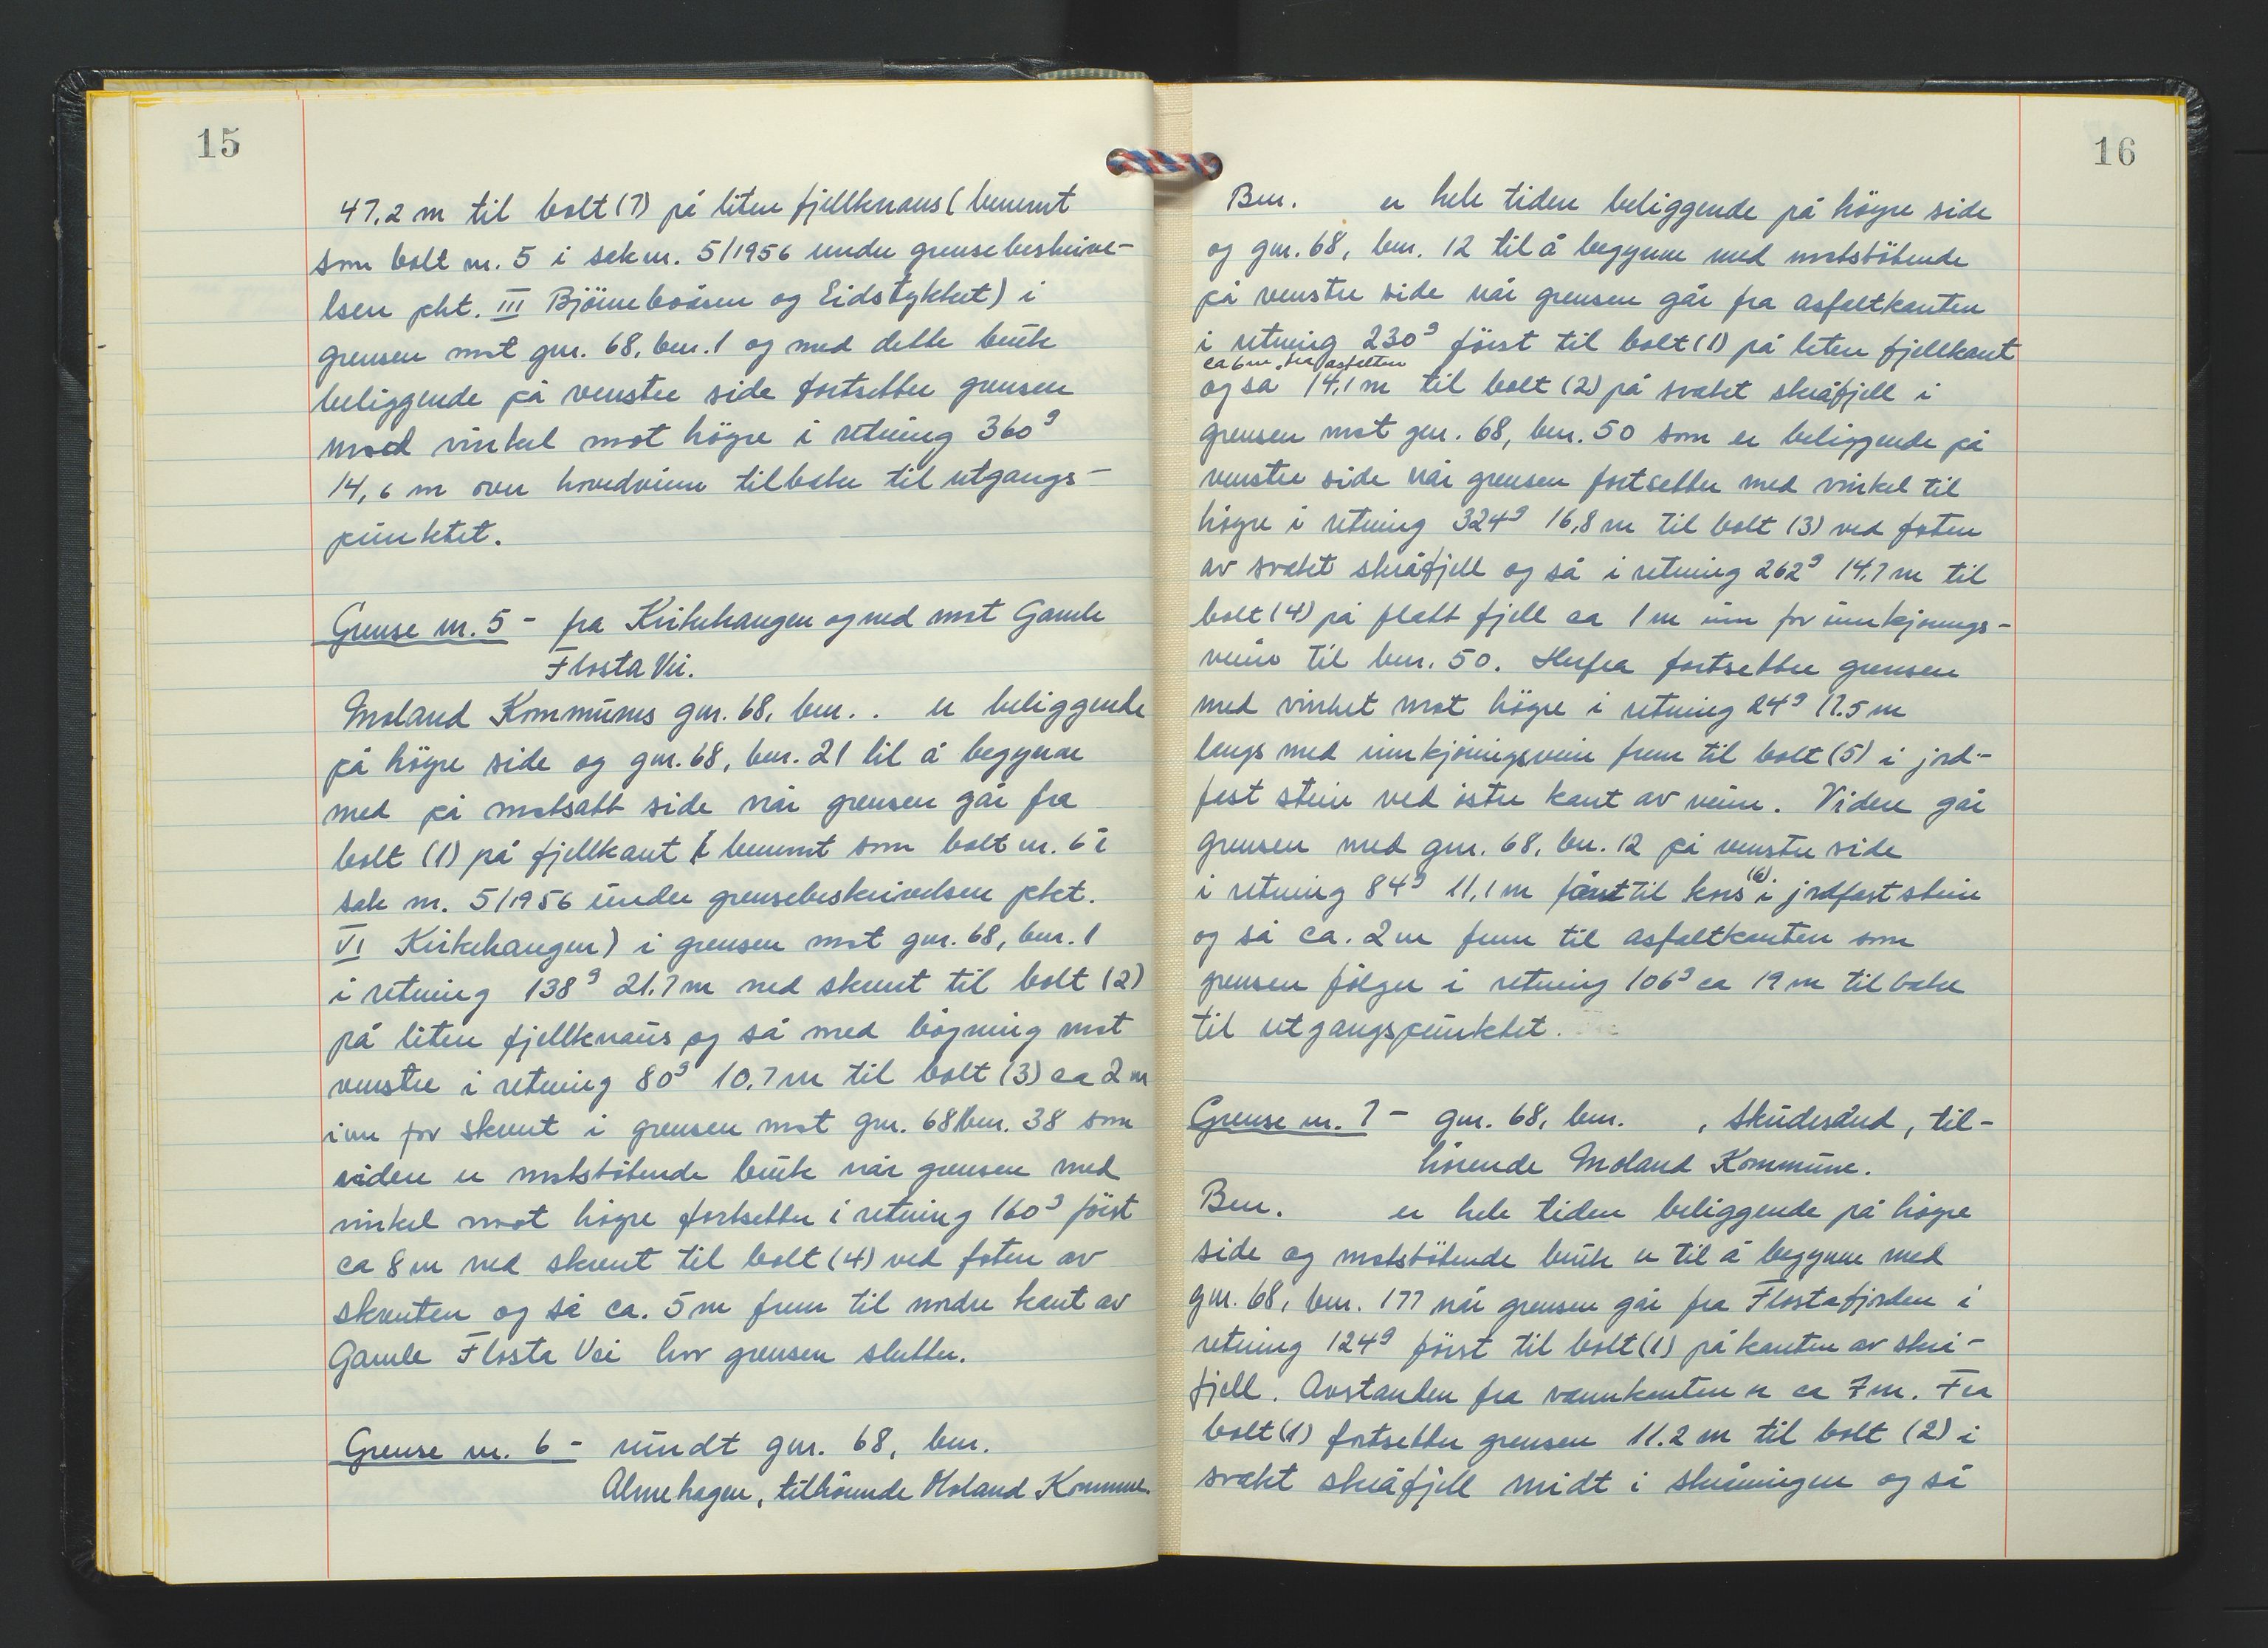 15
47,2 m til bolt (7) på liten fjellknaus (benevnt
som bolt nr. 5 i sak nr. 5/1956 under grensebeskrive-
lsen pkt. III Bjönneboåsen og Eidstykket) i
grensen mot gnr. 68, bnr. 1 og med dette bruk
beliggende på venstre side fortsetter grensen
med vinkel mot högre i retning 360g
14,6 m over hovedveien tilbake til utgangs-
punktet.
Grense nr. 5 - fra Kirkehaugen og ned mot Gamle
Flosta Vei.
Moland Kommunes gnr. 68, bnr. . er beliggende
på högre side og gnr. 68, bnr. 21 til å begynne
med på motsatt side når grensen går fra
bolt (1) på fjellkant ( benevnt som bolt nr. 6 i
sak nr. 5/1956 under grensebeskrivelsen pkt.
VI Kirkehaugen) i grensen mot gnr. 68, bnr. 1
i retning 138g 21.7 m ned skrent til bolt (2)
på liten fjellknaus og så med bögning mot
venstre i retning 80g 10.7 m til bolt (3) ca 2 m
inn for skrent i grensen mot gnr. 68 bnr. 38 som
videre er motstötende bruk når grensen med
vinkel mot högre fortsetter i retning 160g först
ca 8 m ned skrent til bolt (4) ved foten av
skrenten og så ca. 5 m frem til nordre kant av
Gamle Flosta Vei hvor grensen slutter.
Grense nr. 6 - rundt gnr. 68, bnr.
Almehagen, tilhörende Moland Kommune.
16
Bnr. er hele tiden beliggende på högre side
og gnr. 68, bnr. 12 til å begynne med motstötende
på venstre side når grensen går fra asfaltkanten
i retning 230g först til bolt (1) på liten fjellkant
ca 6 m. fra asfalten
og så 14,1 m til bolt (2) på svaket skråfjell i
grensen mot gnr. 68, bnr. 50 som er beliggende på
venstre side når grensen fortsetter med vinkel til
högre i retning 324g 16,8 m til bolt (3) ved foten
av svaket skråfjell og så i retning 262g 14.7 m til
bolt (4) på flatt fjell ca 1 m inn for innkjörings-
veien til bnr. 50. Herfra fortsetter grensen
med vinkel mot högre i retning 24g 17.5 m
langs med innkjöringsveien frem til bolt (5) i jord-
fast stein ved östre kant av veien. Videre går
grensen med gnr. 68, bnr. 12 på venstre side
i retning 84g 11,1 m först til kors (6) i jordfast stein
og så ca. 2 m frem til asfaltkanten som
grensen fölger i retning 106g ca 19 m tilbake
til utgangspunktet.
Grense nr. 7 - gnr. 68, bnr. , Skudesund, til-
hörende Moland Kommune.
Bnr. er hele tiden beliggende på högre
side og motstötende bruk er til å begynne med
gnr. 68, bnr. 177 når grensen går fra Flostafjorden i
retning 124g först til bolt (1) på kanten av skrå-
fjell. Avstanden fra vannkanten er ca 7 m. Fra
bolt (1) fortsetter grensen 11.2 m til bolt (2) i
svaket skråfjell midt i skråningen og så